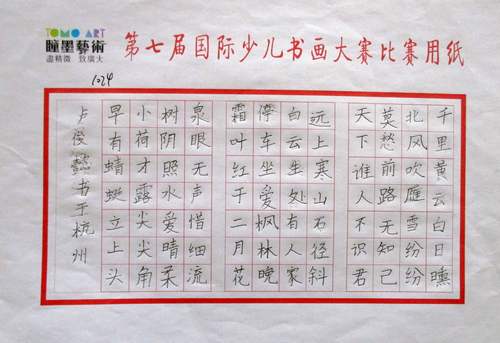 TOMO ART
瞳墨藝術
盡精微 致廣大
第七届国际少儿书画大赛比赛用纸
1024
千里黄云白日曛
北风吹雁雪纷纷
莫愁前路无知己
天下谁人不识君
远上寒山石径斜
白云生处有人家
停车坐爱枫林晚
霜叶红于二月花
泉眼无声惜细流
树阴照水爱晴柔
小荷才露尖尖角
早有蜻蜓立上头
卢俊懿书于杭州